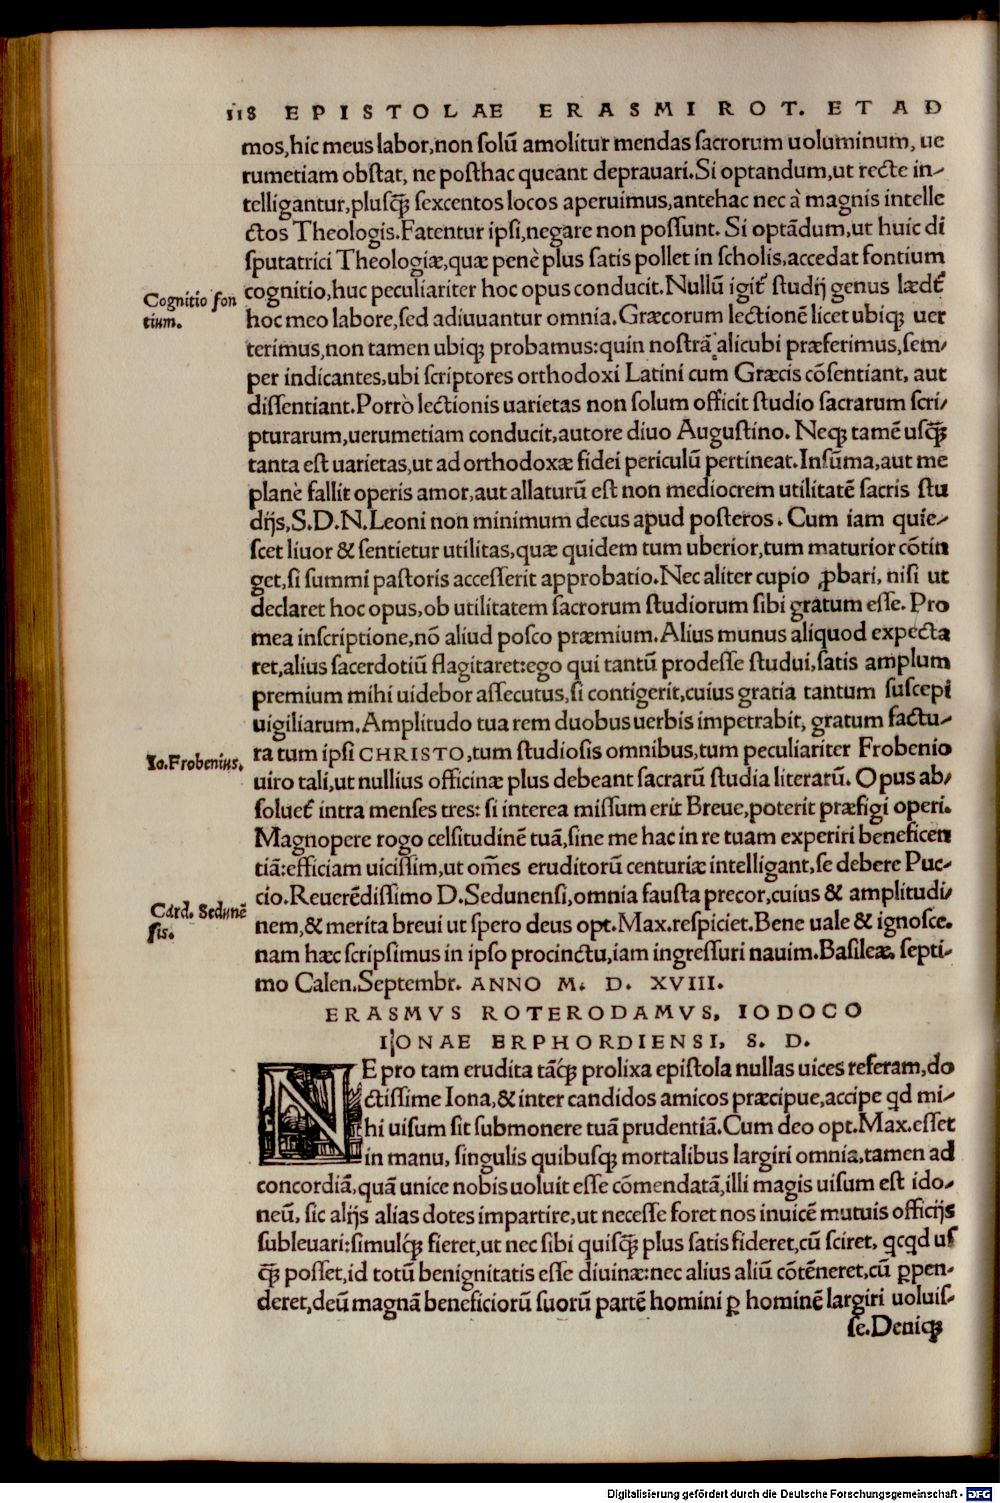 118 EPISTOLAE ERASMI ROT. ET AD
mos,hic meus labor,non ſolũ amolitur mendas ſacrorum uoluminum, ue
rumetiam obſtat, ne poſthac queant deprauari.Si optandum,ut recte in-
telligantur,pluſꝗ̃ ſexcentos locos aperuimus,antehac nec à magnis intelle
ctos Theologis.Fatentur ipſi,negare non poſſunt. Si optãdum,ut huic di
ſputatrici Theologiæ,quæ penè plus ſatis pollet in ſcholis,accedat fontium
Cognitio fon
tium.
cognitio,huc peculiariter hoc opus conducit.Nullũ igit᷑ ſtudij genus lædt᷑
hoc meo labore,ſed adiuuantur omnia.Græcorum lectionẽ licet ubiqꝫ uer
terimus,non tamen ubiqꝫ probamus:quin noſtrã alicubi præferimus,ſem/
per indicantes,ubi ſcriptores orthodoxi Latini cum Græcis cõſentiant, aut
diſſentiant.Porrò lectionis uarietas non ſolum officit ſtudio ſacrarum ſcri/
pturarum,uerumetiam conducit,autore diuo Auguſtino. Neqꝫ tamẽ uſꝗ̃
tanta eſt uarietas,ut ad orthodoxæ fidei periculũ pertineat.In ſũma,aut me
planè fallit operis amor,aut allaturũ eſt non mediocrem utilitatẽ ſacris ſtu
dijs,S.D.N.Leoni non minimum decus apud poſteros. Cum iam quie-
ſcet liuor & ſentietur utilitas,quæ quidem tum uberior,tum maturior cõtin
get,ſi ſummi paſtoris acceſſerit approbatio.Nec aliter cupio ꝓbari, niſi ut
declaret hoc opus,ob utilitatem ſacrorum ſtudiorum ſibi gratum eſſe. Pro
mea inſcriptione,nõ aliud poſco præmium.Alius munus aliquod expecta
ret,alius ſacerdotiũ flagitaret:ego qui tantũ prodeſſe ſtudui,ſatis amplum
premium mihi uidebor aſſecutus,ſi contigerit,cuius gratia tantum ſuſcepi
uigiliarum.Amplitudo tua rem duobus uerbis impetrabit, gratum factu-
Io.Frobenius.
ra tum ipſi CHRISTO,tum ſtudioſis omnibus,tum peculiariter Frobenio
uiro tali,ut nullius officinæ plus debeant ſacrarũ ſtudia literarũ. Opus ab/
ſoluet᷑ intra menſes tres: ſi interea miſſum erit Breue,poterit præfigi operi.
Magnopere rogo celſitudinẽ tuã,ſine me hac in re tuam experiri beneficen
tiã:efficiam uiciſſim,ut om̃es eruditorũ centuriæ intelligant,ſe debere Puc-
Card. Sedunẽ
ſis.
cio.Reuerẽdiſſimo D.Sedunenſi,omnia fauſta precor,cuius & amplitudi/
nem,& merita breui ut ſpero deus opt.Max.reſpiciet.Bene uale & ignoſce.
nam hæc ſcripſimus in ipſo procinctu,iam ingreſſuri nauim.Baſileæ, ſepti-
mo Calen.Septembr. ANNO M. D. XVIII.
ERASMVS ROTERODAMVS, IODOCO
IONAE ERPHORDIENSI, S. D.
NE pro tam erudita tãꝗꝫ prolixa epiſtola nullas uices referam,do
ctiſſime Iona,& inter candidos amicos præcipue,accipe qd mi-
hi uiſum ſit ſubmonere tuã prudentiã.Cum deo opt.Max.eſſet
in manu, ſingulis quibuſqꝫ mortalibus largiri omnia,tamen ad
concordiã,quã unice nobis uoluit eſſe cõmendatã,illi magis uiſum eſt ido-
neũ, ſic alijs alias dotes impartire,ut neceſſe foret nos inuicẽ mutuis officijs
ſubleuari:ſimulꝗꝫ fieret,ut nec ſibi quiſꝗ̃ plus ſatis fideret,cũ ſciret, qcqd uſ
ꝗ̃ poſſet,id totũ benignitatis eſſe diuinæ:nec alius aliũ cõtẽneret,cũ ꝑpen-
deret,deũ magnã beneficiorũ ſuorũ partẽ homini ꝑ hominẽ largiri uoluiſ-
ſe.Deniqꝫ
Digitalisierung gefördert durch die Deutsche Forschungsgemeinschaft - DFG